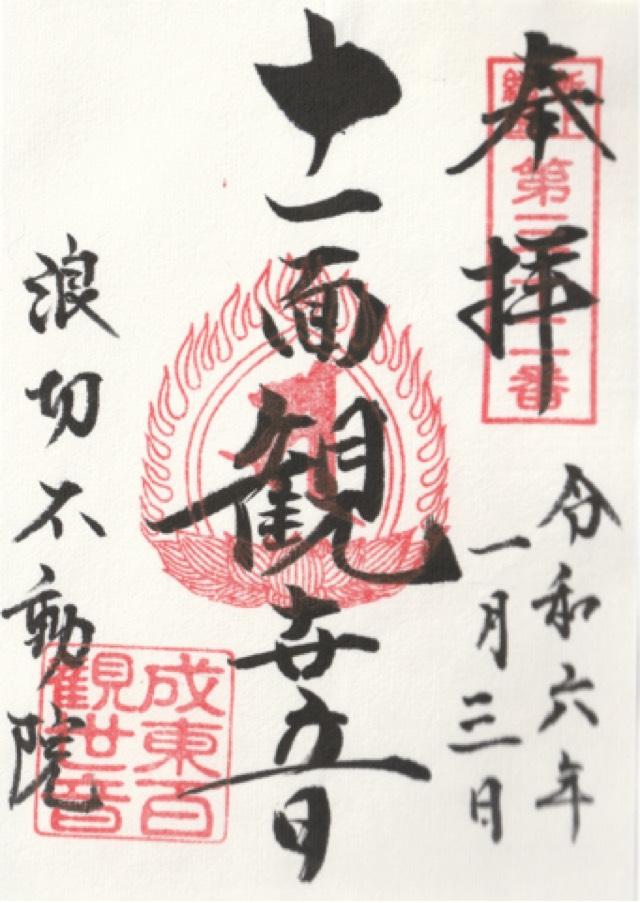 奉拝
第三十二番
令和六年
一月三日
十一面観世音
浪切不動院
成東百
觀世音